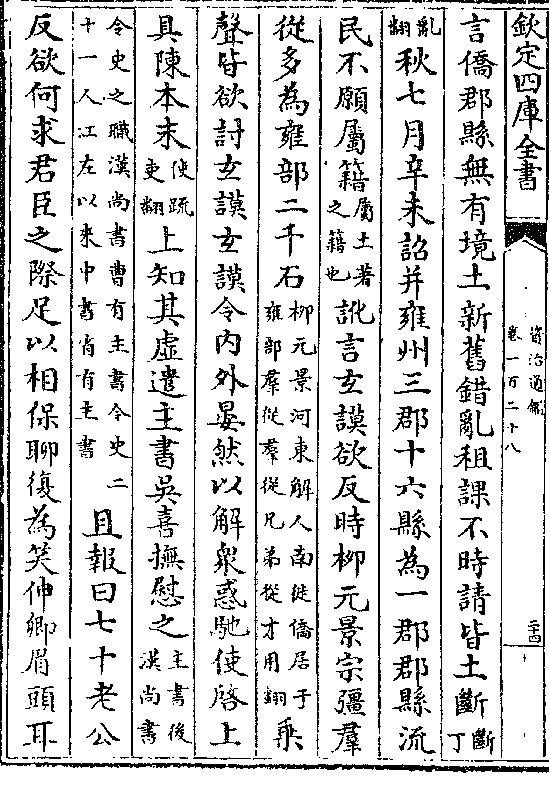 欽定四庫全書
資治通鑑
卷一百二十八
二十四
言僑郡縣無有境土新舊錯亂租課不時請皆土斷斷丁
亂翻秋七月辛未詔并雍州三郡十六縣為一郡郡縣流
民不願屬籍屬土著之籍也訛言玄謨欲反時柳元景宗彊羣
從多為雍部二千石柳元景河東解人南徙僑居于雍部羣從羣從兄弟從才用翻乘
聲皆欲討玄謨玄謨令内外晏然以解衆惑馳使啓上
具陳本末使疏吏翻上知其虛遣主書吳喜撫慰之主書後漢尚書
令史之職漢尚書曹有主書令史二十一人江左以來中書省有主書且報曰七十老公
反欲何求君臣之際足以相保聊復為笑伸卿眉頭耳